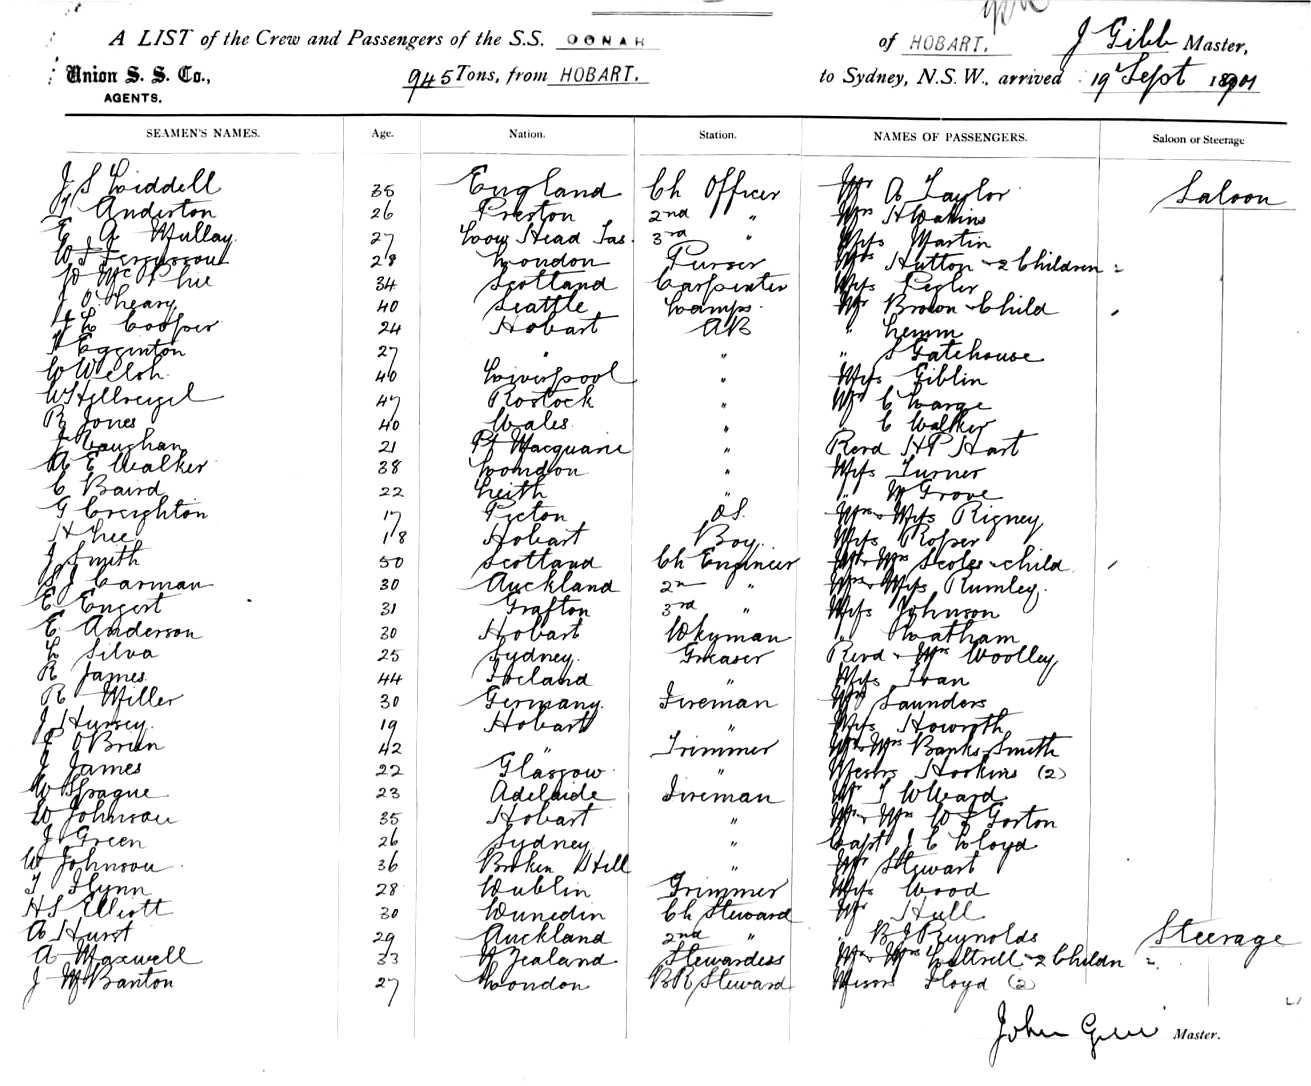 A LIST of the Crew and Passengers of the S.S. OONAH of HOBART. J Gibb Master,
Union S. S. Co., 945 Tons, from HOBART. to Sydney, N.S.W., arrived 19 Sept 1901
AGENTS.
SEAMEN'S NAMES. Age. Nation. Station. NAMES OF PASSENGERS. Saloon or Steerage
J S Liddell 35 England Ch Officer Mr A Taylor Saloon
Anderton 26 Preston 2nd " Mrs
E A Mullay 27 Low Head Tas. 3rd " Miss Martin
W J Fergusson 28 London Purser Mrs Hutton & 2 Children
McPhie 34 Scotland Carpenter Miss Pegler
J O'Leary 40 Seattle Lamps Mr Brown & Child
Cooper 24 Hobart AB "
Egginton 27 " " " S Gatehouse
W Welsh 40 Liverpool " Miss Giblin
47 Rostock " Mr C
R Jones 40 Wales " C Walker
J Vaughan 21 Pt Macquarie " Revd H P Hart
A E Walker 38 London " Miss Turner
C Baird 22 Leith " " Grove
G Creighton 17 Picton OS. Rigney
H Lee 18 Hobart Boy. Miss Roper
J Smith 50 Scotland Ch Engineer Mr & Mrs Scoles & child
S J Carman 30 Auckland 2nd " Miss Rumley
E Engert 31 Grafton 3rd " Miss Johnson
E Anderson 30 Hobart Wkyman "
L Silva 25 Sydney. Greaser Revd & Mrs Woolley
R James 44 Ireland " Miss
R Miller 30 Germany. Fireman Saunders
J Hursey. 19 Hobart " Miss Howorth
O'Brien 42 " Trimmer Mr & Mrs Banks-Smith
J James 22 Glasgow " Messrs Hoskins (2)
W Sprague 23 Adelaide Fireman Mr
W Johnson 35 Hobart " Mr & Mrs Gorton
J Green 26 Sydney " Capt J C Lloyd
W Johnson 36 Broken Hill " Mr Stewart
T Flynn 28 Dublin Trimmer Miss Wood
H S Elliott 30 Dunedin Ch Steward Mr Hull
A Hurst 29 Auckland 2nd " " B J Reynolds Steerage
A Maxwell 33 N Zealand Stewardess Mr & Mrs & 2 Childn
J McBanton 27 London BR Steward Lloyd (2)
John Gibb Master.